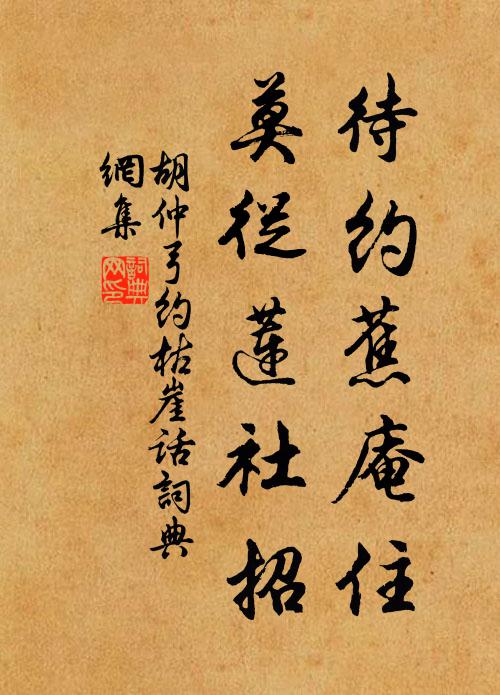 待約蕉庵住
莫從蓮社招
胡仲弓約枯崖話詞典
網集
詞典
网印